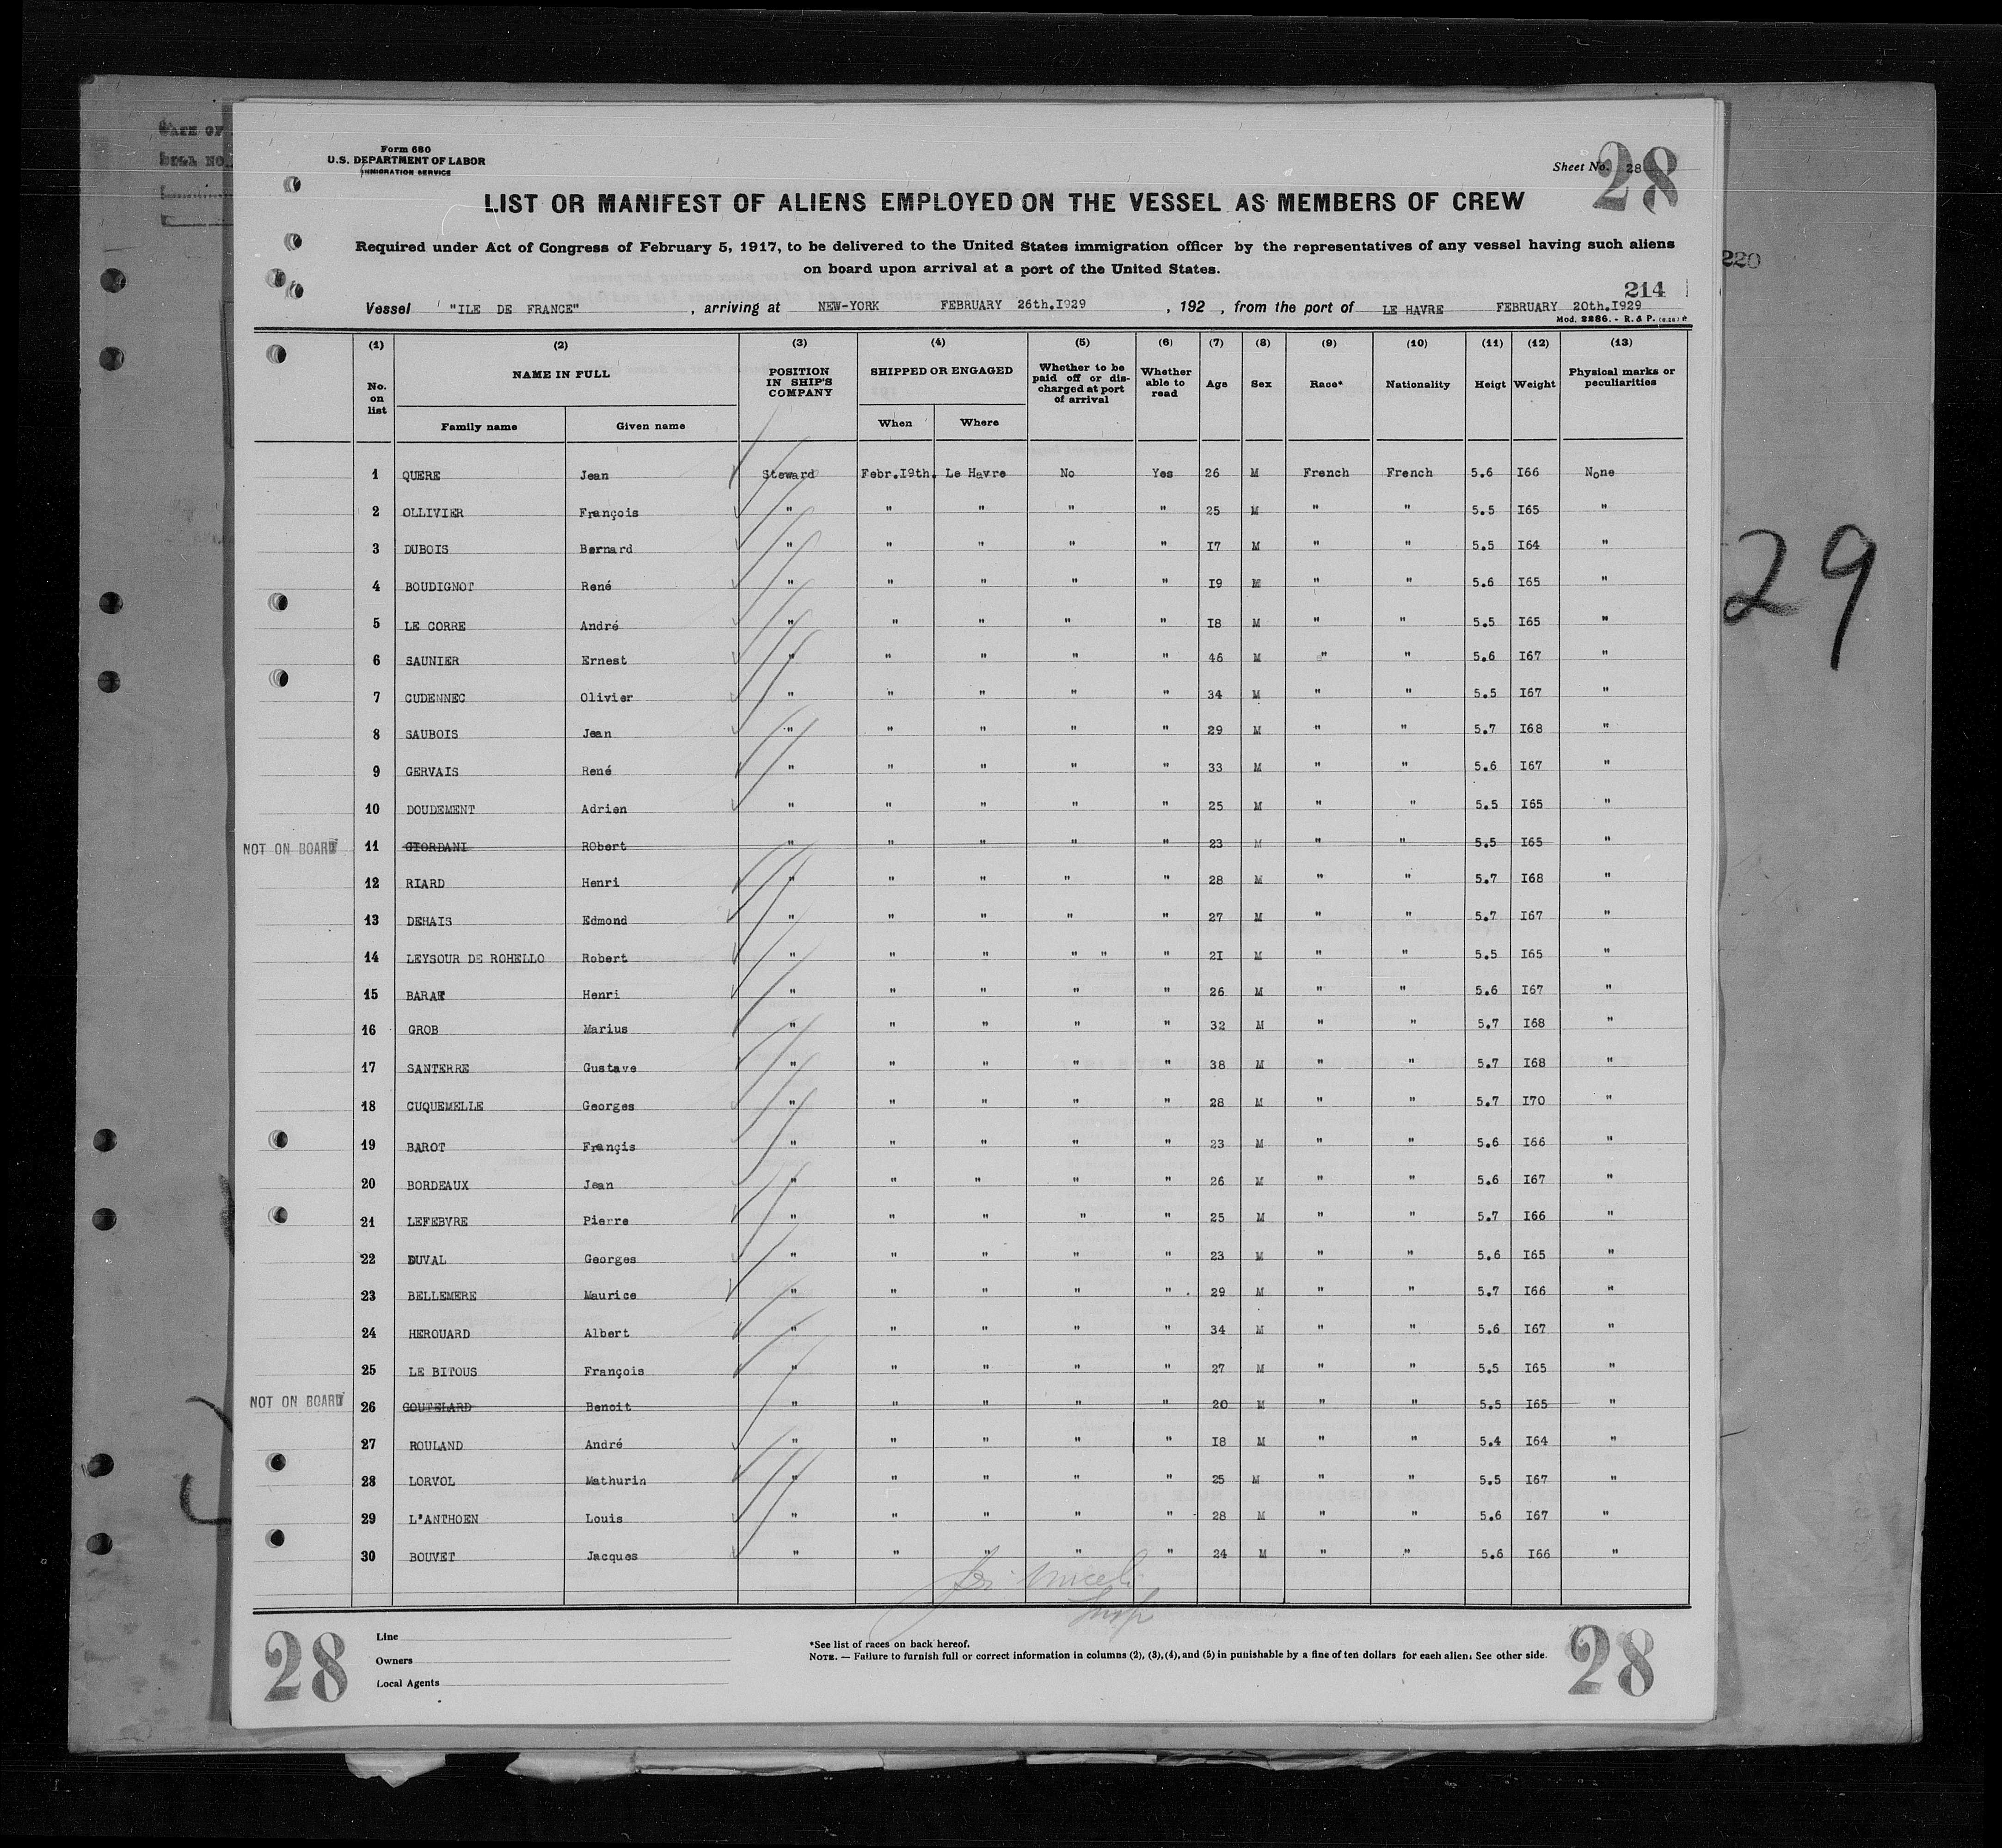 DATE OF
Form 680
U.S. DEPARTMENT OF LABOR
IMMIGRATION SERVICE
Sheet No. 28
28
LIST OR MANIFEST OF ALIENS EMPLOYED ON THE VESSEL AS MEMBERS OF CREW
Required under Act of Congress of February 5, 1917, to be delivered to the United States immigration officer by the representatives of any vessel having such aliens
on board upon arrival at a port of the United States.
220
214
Vessel "ILE DE FRANCE" , arriving at NEW-YORK FEBRUARY 26th.I929 , 192 , from the port of LE HAVRE FEBRUARY 20th.I929
Mod. 2286. - R. & P.
(1) (2) (3) (4) (5) (6) (7) (8) (9) (10) (11) (12) (13)
No. on list NAME IN FULL POSITION IN SHIP'S COMPANY SHIPPED OR ENGAGED Whether to be paid off or discharged at port of arrival Whether able to read Age Sex Race* Nationality Heigt Weight Physical marks or peculiarities
Family name Given name When Where
1 QUERE Jean Steward Febr.I9th. Le Havre No Yes 26 M French French 5.6 I66 None
2 OLLIVIER François " " " " " 25 M " " 5.5 I65 "
3 DUBOIS Bernard " " " " " I7 M " " 5.5 I64 "
4 BOUDIGNOT René " " " " " I9 M " " 5.6 I65 "
5 LE CORRE André " " " " " I8 M " " 5.5 I65 "
6 SAUNIER Ernest " " " " " 46 M " " 5.6 I67 "
7 CUDENNEC Olivier " " " " " 34 M " " 5.5 I67 "
8 SAUBOIS Jean " " " " " 29 M " " 5.7 I68 "
9 GERVAIS René " " " " " 33 M " " 5.6 I67 "
10 DOUDEMENT Adrien " " " " " 25 M " " 5.5 I65 "
NOT ON BOARD 11 GIORDANI RObert " " " " " 23 M " " 5.5 I65 "
12 RIARD Henri " " " " " 28 M " " 5.7 I68 "
13 DEHAIS Edmond " " " " " 27 M " " 5.7 I67 "
14 LEYSOUR DE ROHELLO Robert " " " " " " 2I M " " 5.5 I65 "
15 BARAT Henri " " " " " 26 M " " 5.6 I67 "
16 GROB Marius " " " " " 32 M " " 5.7 I68 "
17 SANTERRE Gustave " " " " " 38 M " " 5.7 I68 "
18 CUQUEMELLE Georges " " " " " 28 M " " 5.7 I70 "
19 BAROT Françis " " " " " 23 M " " 5.6 I66 "
20 BORDEAUX Jean " " " " " 26 M " " 5.6 I67 "
21 LEFEBVRE Pierre " " " " " 25 M " " 5.7 I66 "
22 DUVAL Georges " " " " " 23 M " " 5.6 I65 "
23 BELLEMERE Maurice " " " " " 29 M " " 5.7 I66 "
24 HEROUARD Albert " " " " " 34 M " " 5.6 I67 "
25 LE BITOUS François " " " " " 27 M " " 5.5 I65 "
NOT ON BOARD 26 GOUTELARD Benoit " " " " " 20 M " " 5.5 I65 "
27 ROULAND André " " " " " I8 M " " 5.4 I64 "
28 LORVOL Mathurin " " " " " 25 M " " 5.5 I67 "
29 L'ANTHOEN Louis " " " " " 28 M " " 5.6 I67 "
30 BOUVET Jacques " " " " " 24 M " " 5.6 I66 "
29
28
Line
Owners
Local Agents
*See list of races on back hereof.
NOTE. — Failure to furnish full or correct information in columns (2), (3), (4), and (5) in punishable by a fine of ten dollars for each alien. See other side.
28